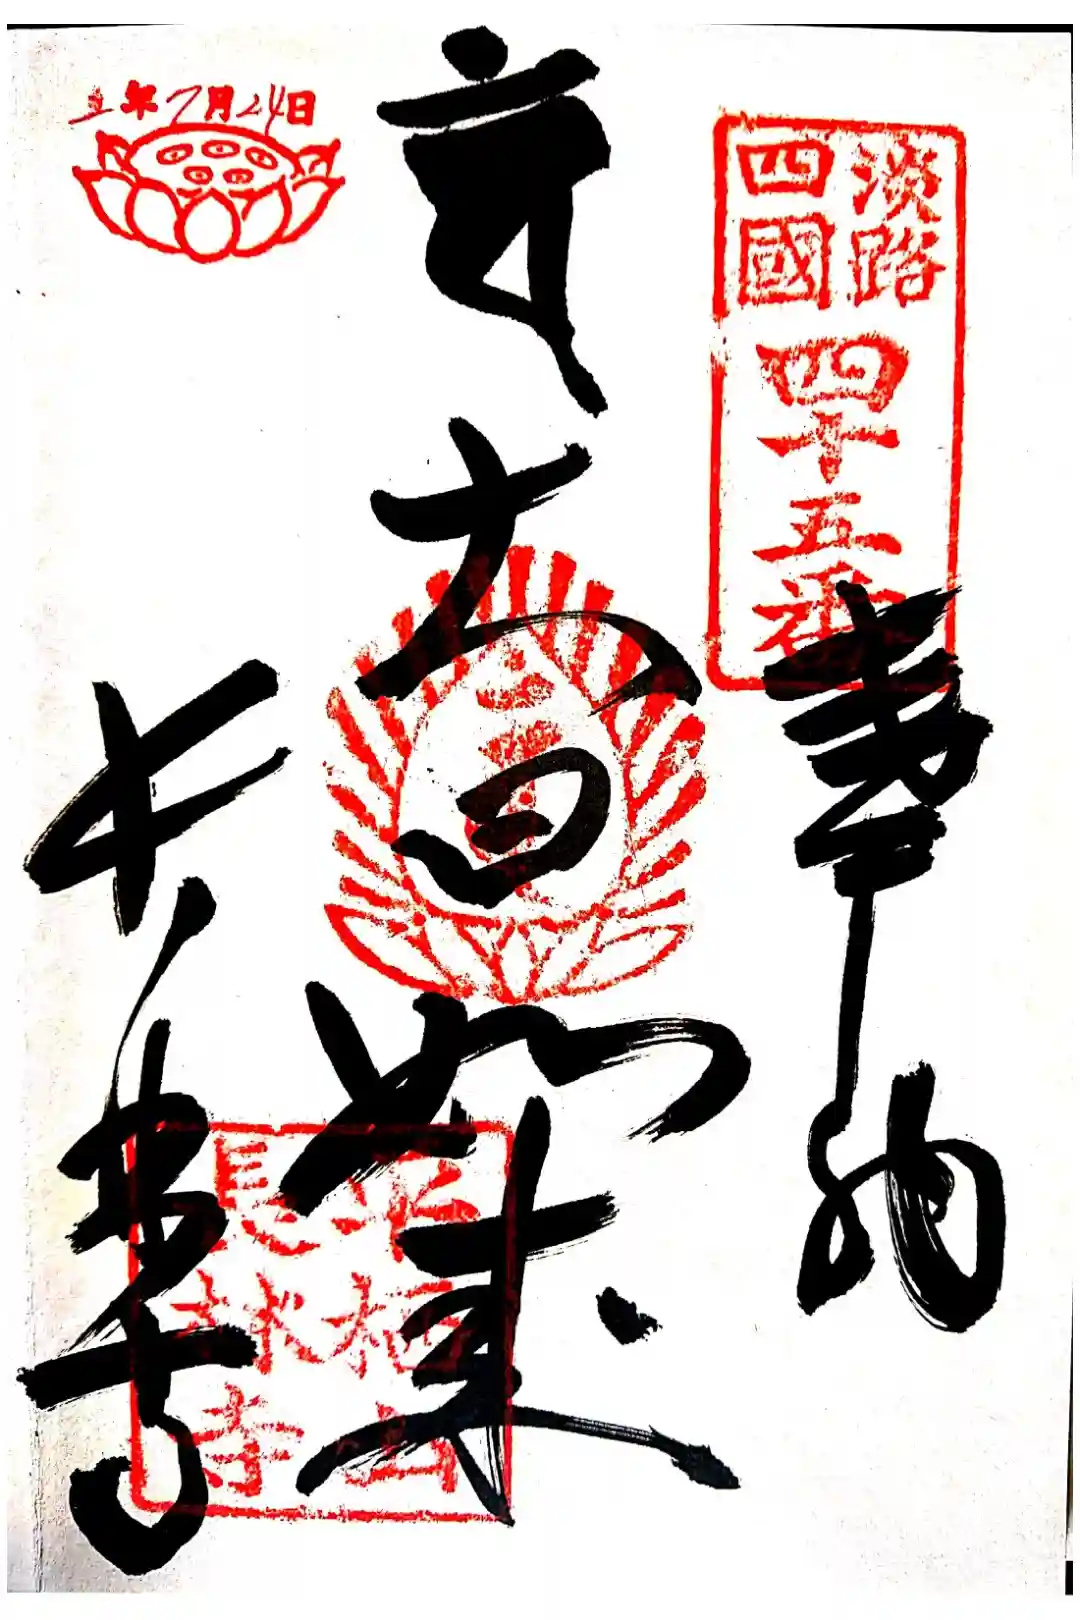 五年7月24日
淡路
四國
四十五番
奉納
大日如来
栖山
長
寺